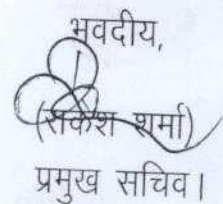 भवदीय,
(राकेश शर्मा)
प्रमुख सचिव।